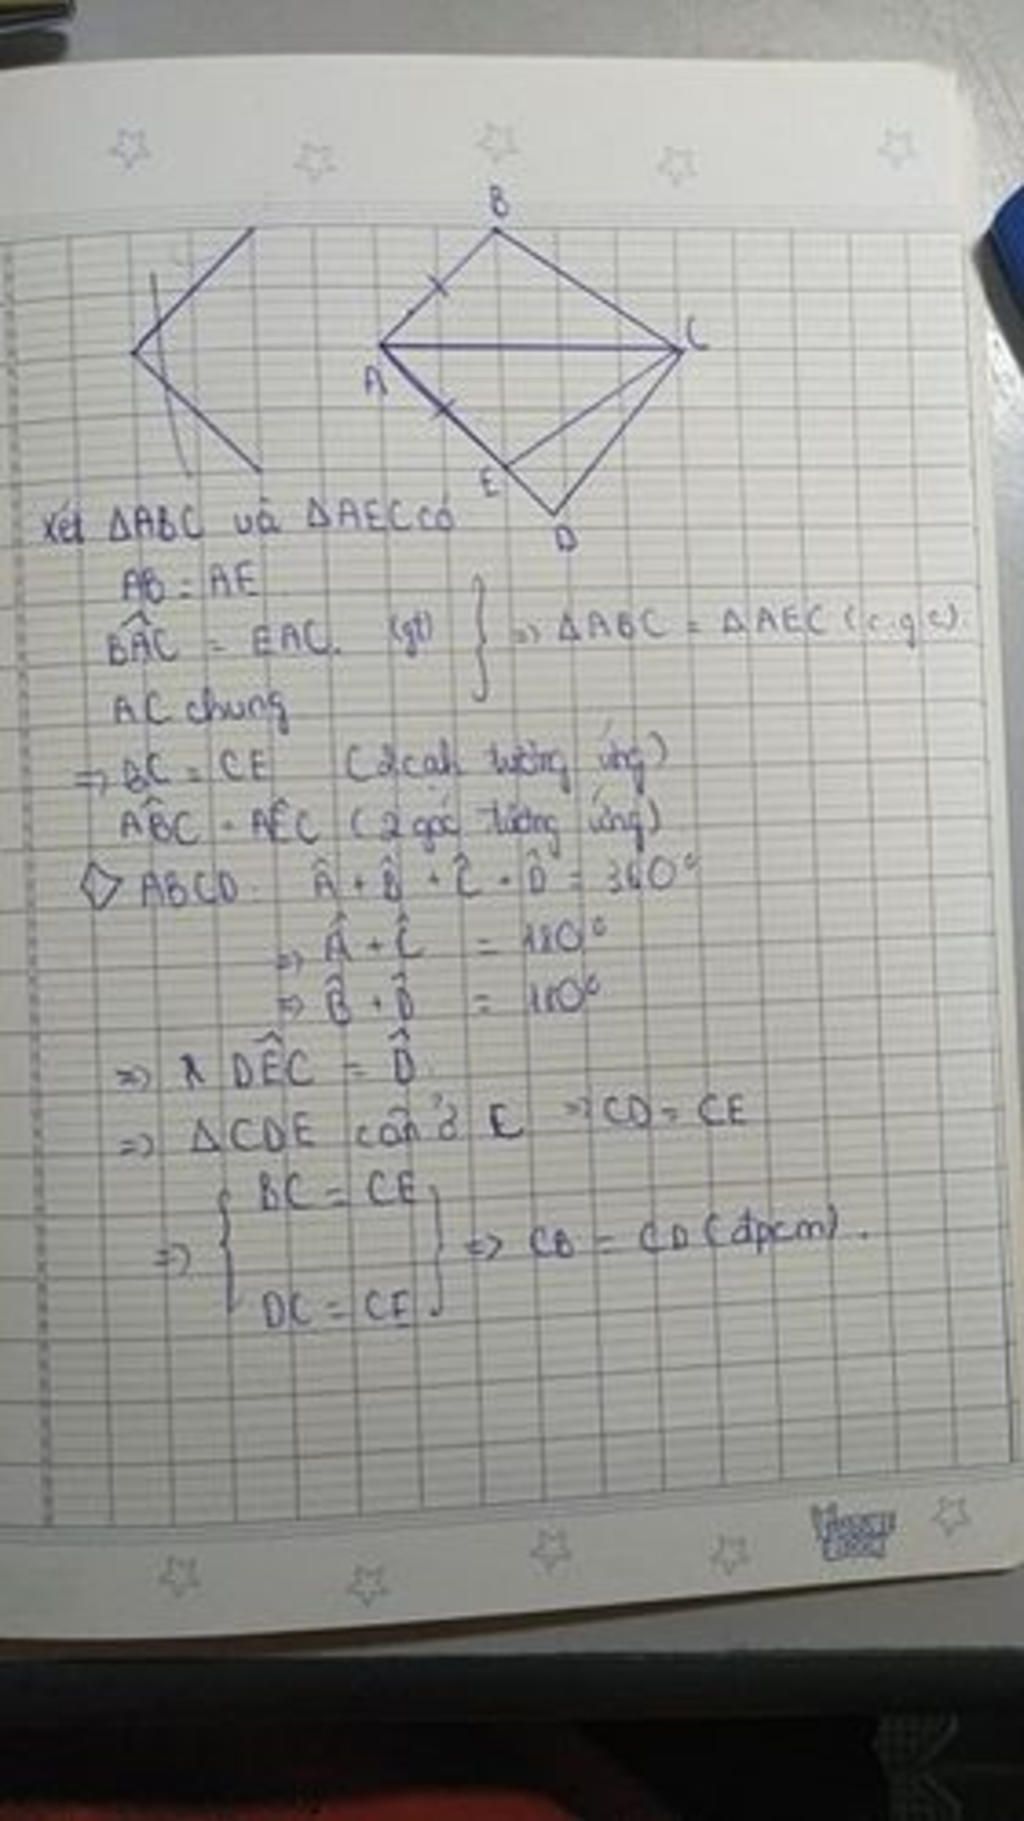 B
A
C
E
D
Xét ΔABC và ΔAEC có
AB = AE
BÂC = EAC. (gt) } => ΔABC = ΔAEC (c.g.c).
AC chung
=> BC = CE (2 cah tương ứng)
AB̂C = AÊC (2 góc tương ứng)
◇ ABCD. Â + B̂ + Ĉ + D̂ = 360°
=> Â + Ĉ = 180°
=> B̂ + D̂ = 180°
=> DÊC = D̂
=> ΔCDE cân ở C => CD = CE
=> { BC = CE
DC = CE } => CB = CD (đpcm).